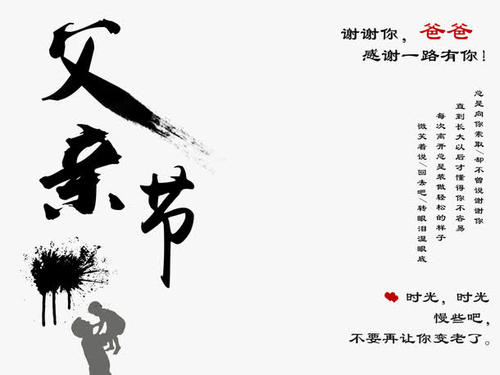 父亲节
谢谢你，爸爸
感谢一路有你！
总是向你索取/却不曾说谢谢你
直到长大以后才懂得你不容易
每次离开总是装做轻松的样子
微笑着说/回去吧/转眼泪湿眼底
时光，时光
慢些吧，
不要再让你变老了。